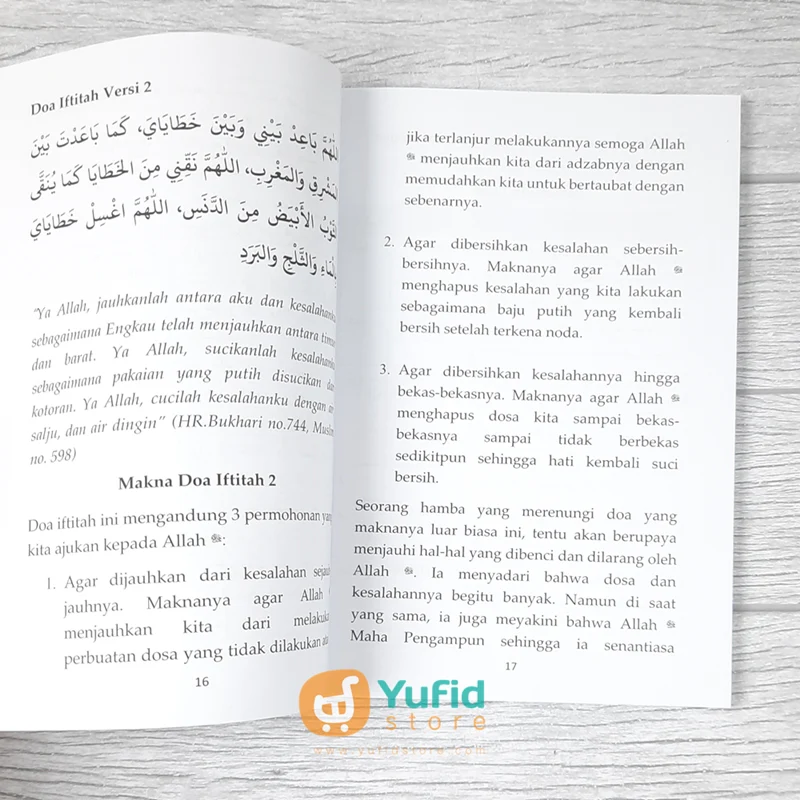 Doa Iftitah Versi 2
اللَّهُمَّ بَاعِدْ بَيْنِي وَبَيْنَ خَطَايَايَ، كَمَا بَاعَدْتَ بَيْنَ
الْمَشْرِقِ وَالْمَغْرِبِ، اللَّهُمَّ نَقِّنِي مِنَ الخَطَايَا كَمَا يُنَقَّى
الثَّوْبُ الأَبْيَضُ مِنَ الدَّنَسِ، اللَّهُمَّ اغْسِلْ خَطَايَايَ
بِالْمَاءِ وَالثَّلْجِ وَالبَرَدِ
"Ya Allah, jauhkanlah antara aku dan
sebagaimana Engkau telah menjauhkan antara
dan barat. Ya Allah, sucikanlah
sebagaimana pakaian yang putih disucikan
kotoran. Ya Allah, cucilah kesalahanku dengan
salju, dan air dingin" (HR.Bukhari no.744,
no. 598)
Makna Doa Iftitah 2
Doa iftitah ini mengandung 3 permohonan yang
kita ajukan kepada Allah ﷻ:
1. Agar dijauhkan dari kesalahan
jauhnya. Maknanya agar Allah
menjauhkan kita dari
perbuatan dosa yang tidak dilakukan
16
jika terlanjur melakukannya semoga Allah
ﷻ menjauhkan kita dari adzabnya dengan
memudahkan kita untuk bertaubat dengan
sebenarnya.
2. Agar dibersihkan kesalahan sebersih-
bersihnya. Maknanya agar Allah ﷻ
menghapus kesalahan yang kita lakukan
sebagaimana baju putih yang kembali
bersih setelah terkena noda.
3. Agar dibersihkan kesalahannya hingga
bekas-bekasnya. Maknanya agar Allah ﷻ
menghapus dosa kita sampai bekas-
bekasnya sampai tidak berbekas
sedikitpun sehingga hati kembali suci
bersih.
Seorang hamba yang merenungi doa yang
maknanya luar biasa ini, tentu akan berupaya
menjauhi hal-hal yang dibenci dan dilarang oleh
Allah ﷻ. Ia menyadari bahwa dosa dan
kesalahannya begitu banyak. Namun di saat
yang sama, ia juga meyakini bahwa Allah ﷻ
Maha Pengampun sehingga ia senantiasa
17
Yufid
store
www.yufidstore.com